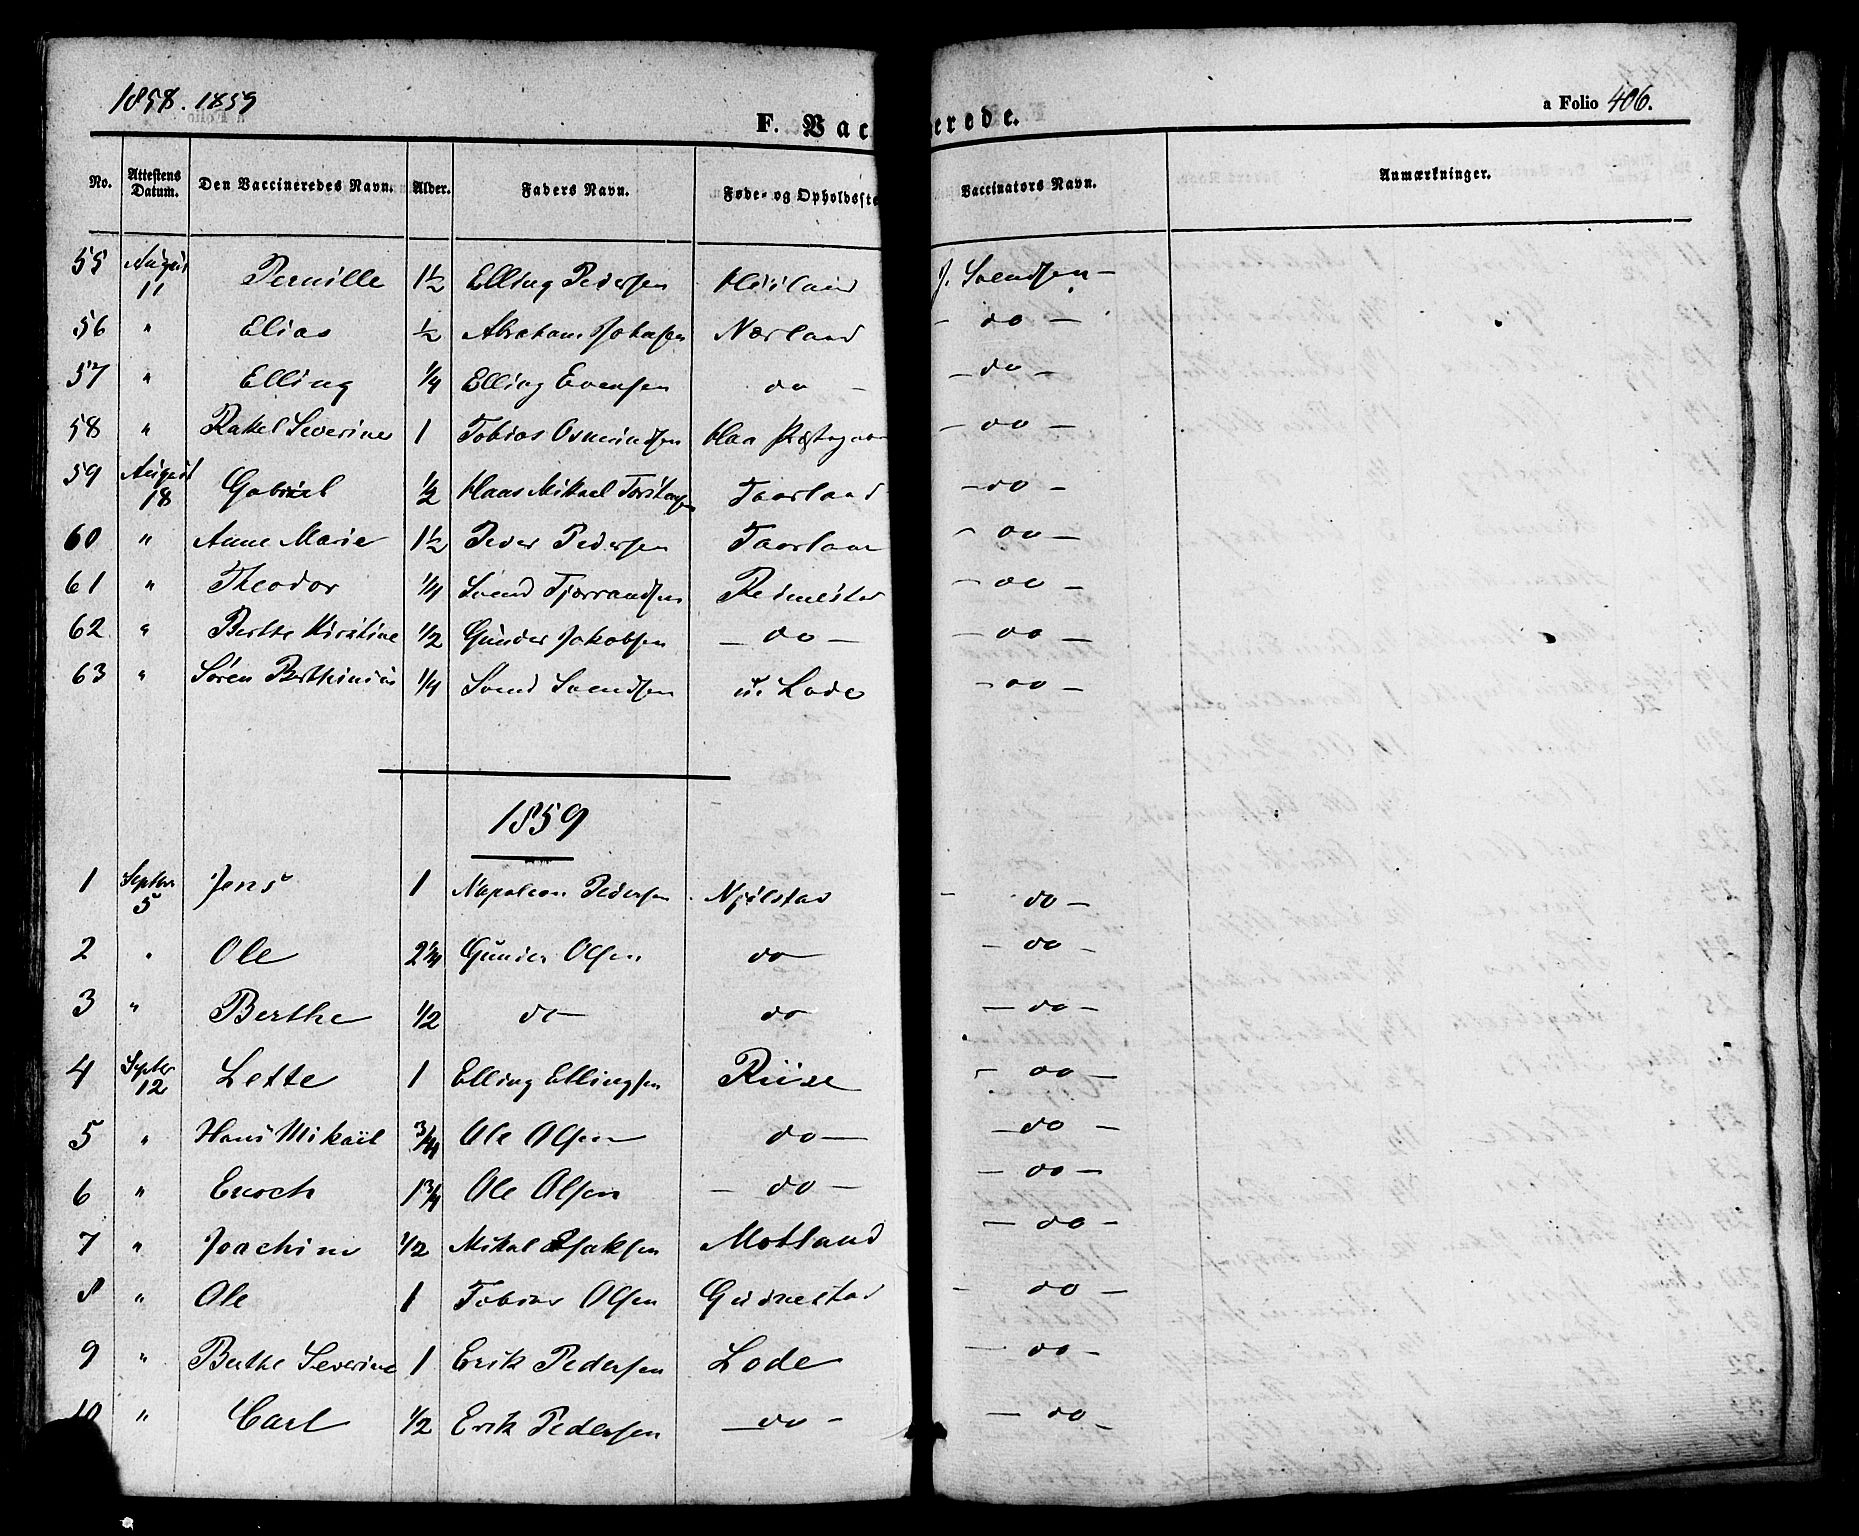 1858. 1859
a Folio 406.
F. Vac erede.
No. Attestens Datum. Den Vaccineredes Navn. Alder. Faders Navn. Føde- og Opholdsste Vaccinators Navn. Anmærkninger.
55 August 11 Pernille 1½ Elling Pedersen J. Svendsen —
56 " Elias ½ Abraham Nærland — do —
57 " Elling ¼ Elling Evensen do — — do —
58 " Rakel Severine 1 Tobias Osmundsen Haa — do —
59 August 18 Gabriel ½ Mikael Taarland — do —
60 " Anne Marie 1½ Peder Pedersen Taarlan — do —
61 " Theodor ¼ Svend Tjørrandsen — do —
62 " Berthe Kirstine ½ Gunder Jakobsen — do — — do —
63 " Søren Berthinius ¼ Svend Svendsen Lode — do —
1859
1 Septbr 5 Jens 1 Napoleon Pedersen Njølstad — do —
2 " Ole 2¾ Gunder Olsen do — — do —
3 " Berthe ½ do — do — do —
4 Septbr 12 Lette 1 Elling Ellingsen Riise — do —
5 " Hans Mikael ¾ Ole Olsen do — — do —
6 " Enoch 1¾ Ole Olsen — do — — do —
7 " Joachim ½ Mikal Isaksen Motland — do —
8 " Ole 1 Tobias Olsen Gudmestad — do —
9 " Berthe Severine 1 Erik Pedersen Lode — do —
10 " Carl ½ Erik Pedersen — do — — do —